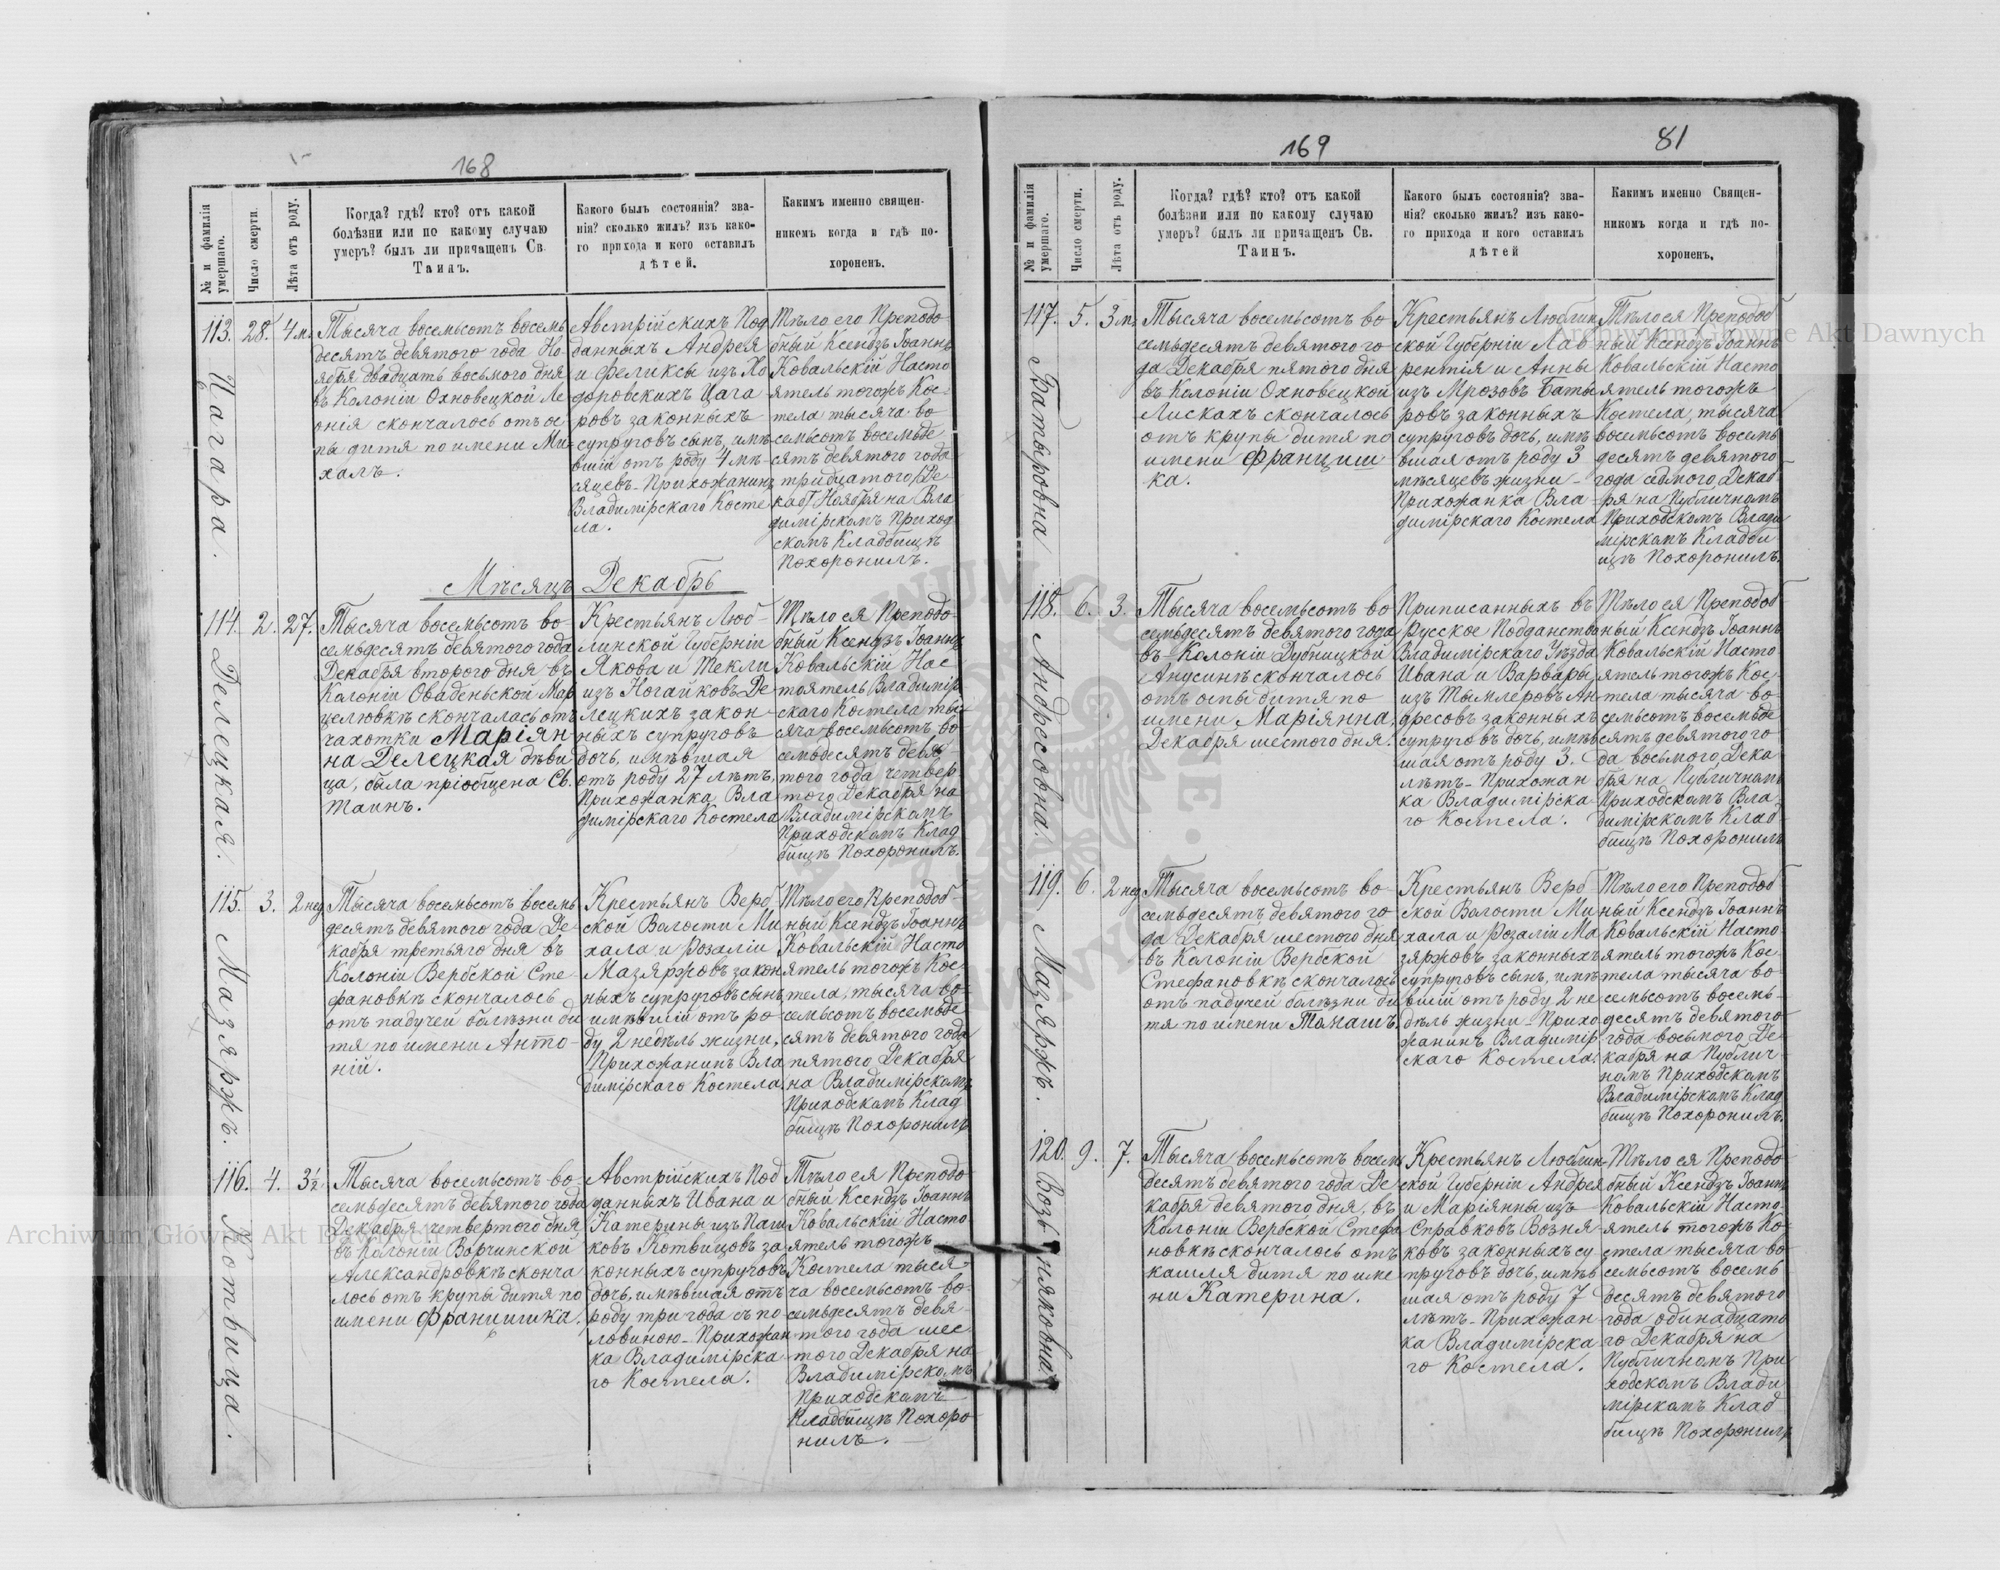 168
№ и фамилія умершаго.
Число смерти.
Лѣта отъ роду.
Когда? гдѣ? кто? отъ какой
болѣзни или по какому случаю
умеръ? былъ ли причащенъ Св.
Таинъ.
Какого былъ состоянія? зва-
нія? сколько жилъ? изъ како-
го прихода и кого оставилъ
дѣтей.
Какимъ именно священ-
никомъ когда и гдѣ по-
хороненъ.
113.
Цагара.
28.
4 м.
Тысяча восемьсотъ восемь
десятъ девятого года Но
ября двадцать восьмого дня
въ Колоніи Охновецкой Ле
онія скончалось отъ ос
пы дитя по имени Ми-
халъ.
Австрійскихъ Под
данныхъ Андрея
и Феликсы изъ Хо
доровскихъ Цага
ровъ законныхъ
супруговъ сынъ, имѣ
вшій отъ роду 4 мѣ-
сяцевъ - Прихожанинъ
Владимірскаго Косте
ла.
Тѣло его Преподо-
бный Ксендзъ Іоаннъ
Ковальскій Насто
ятель тогожъ Кос-
тела тысяча во
семьсотъ восемьде
сятъ девятого года
тридцатого
Ноября на Вла
димірскомъ Приход
скомъ Кладбищѣ
Похоронилъ.
Мѣсяцъ Декабрь
114.
Делецкая.
2.
27.
Тысяча восемьсотъ во-
семьдесятъ девятого года
Декабря второго дня въ
Колоніи Оваденьской Мар
целювкѣ скончалась отъ
чахотки Маріян
на Делецкая дѣви
ца, была пріобщена Св.
Таинъ.
Крестьянъ Люб-
линской Губерніи
Якова и Текли
изъ Ногайковъ Де
лецкихъ закон-
ныхъ супруговъ
дочь, имѣвшая
отъ роду 27 лѣтъ,
Прихожанка Вла
димірскаго Костела
Тѣло ея Преподо-
бный Ксендзъ Іоаннъ
Ковальскій Нас-
тоятель Владимір
скаго Костела ты
сяча восемьсотъ во-
семьдесятъ девя-
того года четвер
того Декабря на
Владимірскомъ
Приходскомъ Клад
бищѣ Похоронилъ.
115.
Мазяржъ.
3.
2 нед
Тысяча восемьсотъ восемь
десятъ девятого года Де-
кабря третьяго дня въ
Колоніи Вербской Сте
фановкѣ скончалось
отъ падучей болѣзни ди
тя по имени Анто-
ній.
Крестьянъ Верб
ской Волости Ми
хала и Розаліи
Мазяржовъ закон
ныхъ супруговъ сынъ
имѣвшій отъ ро-
ду 2 недѣль жизни,
Прихожанинъ Вла
димірскаго Костела
Тѣло его Преподоб-
ный Ксендзъ Іоаннъ
Ковальскій Насто
ятель тогожъ Кос-
тела, тысяча во-
семьсотъ восемьде
сятъ девятого года
пятого Декабря
на Владимірскомъ
Приходскомъ Клад
бищѣ Похоронилъ
116.
Котвица.
4.
3½
Тысяча восемьсотъ во-
семьдесятъ девятого года
Декабря четвертого дня
въ Колоніи Ворчинской
Александровкѣ сконча
лось отъ крупы дитя по
имени Францишка.
Австрійскихъ Под
данныхъ Ивана и
Катерины изъ Паш
ковъ Котвицовъ за
конныхъ супруговъ
дочь, имѣвшая отъ
роду три года съ по-
ловиною - Прихожан
ка Владимірска
го Костела.
Тѣло ея Преподо
бный Ксендзъ Іоаннъ
Ковальскій Насто-
ятель тогожъ
Костела тыся-
ча восемьсотъ во-
семьдесятъ девя-
того года шес-
того Декабря на
Владимірскомъ
Приходскомъ
Кладбищѣ Похоро-
нилъ.
169
81
№ и фамилія умершаго.
Число смерти.
Лѣта отъ роду.
Когда? гдѣ? кто? отъ какой
болѣзни или по какому случаю
умеръ? былъ ли причащенъ Св.
Таинъ.
Какого былъ состоянія? зва-
нія? сколько жилъ? изъ како-
го прихода и кого оставилъ
дѣтей
Какимъ именно Священ-
никомъ когда и гдѣ по-
хороненъ.
117.
Батыровна
5.
3 м.
Тысяча восемьсотъ во
семьдесятъ девятого го-
да Декабря пятого дня
въ Колоніи Охновецкой
Лискахъ скончалось
отъ крупы дитя по
имени Франциш
ка.
Крестьянъ Люблин
ской Губерніи Лав
рентія и Анны
изъ Мрозовъ Баты
ровъ законныхъ
супруговъ дочь, имѣ
вшая отъ роду 3
мѣсяцевъ жизни -
Прихожанка Вла-
димірскаго Костела
Тѣло ея Преподоб
ный Ксендзъ Іоаннъ
Ковальскій Насто
ятель тогожъ
Костела, тысяча
восемьсотъ восемь
десятъ девятого
года седмого Декаб-
ря на Публичномъ
Приходскомъ Влади
мірскомъ Кладби
щѣ Похоронилъ.
118.
Андресовна.
6.
3.
Тысяча восемьсотъ во
семьдесятъ девятого года
въ Колоніи Дубницкой
Анусинѣ скончалось
отъ оспы дитя по
имени Маріянна,
Декабря шестого дня.
Приписанныхъ въ
Русское Подданство
Владимірскаго Уѣзда
Ивана и Варвары
изъ Тымлеровъ Ан
дресовъ законныхъ
супруговъ дочь, имѣв
шая отъ роду 3.
лѣтъ - Прихожан
ка Владимірска-
го Костела.
Тѣло ея Преподоб
ный Ксендзъ Іоаннъ
Ковальскій Насто
ятель тогожъ Кос-
тела тысяча во-
семьсотъ восемьде
сятъ девятого го-
да восьмого Дека
бря на Публичномъ
Приходскомъ Вла-
димірскомъ Клад-
бищѣ Похоронилъ
119.
Мазяржъ.
6.
2 нед
Тысяча восемьсотъ во-
семьдесятъ девятого го
да Декабря шестого дня
въ Колоніи Вербской
Стефановкѣ скончалось
отъ падучей болѣзни ди
тя по имени Томашъ.
Крестьянъ Верб-
ской Волости Ми
хала и Розаліи Ма
зяржовъ законныхъ
супруговъ сынъ, имѣ
вшій отъ роду 2 не
дѣль жизни - Прихо
жанинъ Владимір
скаго Костела.
Тѣло его Преподоб
ный Ксендзъ Іоаннъ
Ковальскій Насто-
ятель тогожъ Кос-
тела тысяча во
семьсотъ восемь-
десятъ девятого
года восьмого Де-
кабря на Публич-
номъ Приходскомъ
Владимірскомъ Клад
бищѣ Похоронилъ.
120.
Возьняковна.
9.
7.
Тысяча восемьсотъ восемь
десятъ девятого года Де
кабря девятого дня, въ
Колоніи Вербской Стефа
новкѣ скончалось отъ
кашля дитя по име
ни Катерина.
Крестьянъ Люблин-
ской Губерніи Андрея
и Маріянны изъ
Справковъ Возня-
ковъ законныхъ су
пруговъ дочь, имѣв
шая отъ роду 7
лѣтъ - Прихожан
ка Владимірска-
го Костела.
Тѣло ея Преподо-
бный Ксендзъ Іоаннъ
Ковальскій Насто-
ятель тогожъ Ко-
стела тысяча во-
семьсотъ восемь
десятъ девятого
года одинадцато
го Декабря на
Публичномъ При
ходскомъ Влади
мірскомъ Клад
бищѣ Похоронилъ
Archiwum Główne Akt Dawnych
Archiwum Główne Akt Dawnych